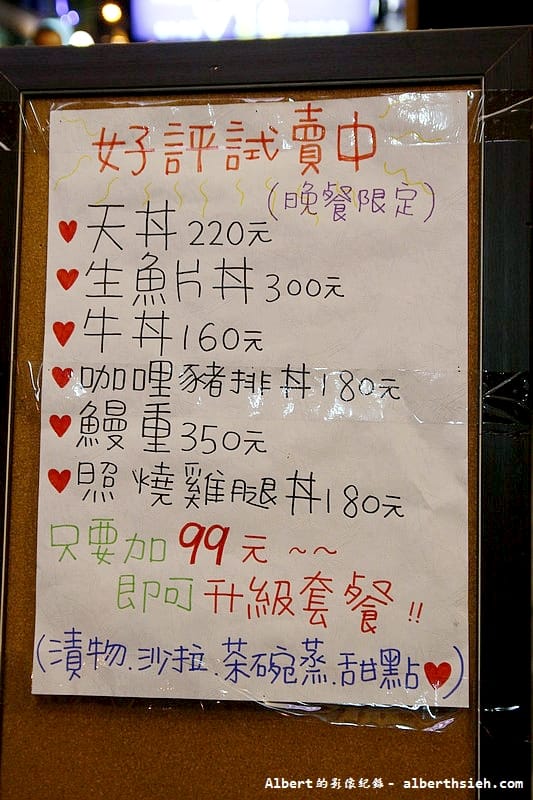 好評試賣中
(晚餐限定)
♥天丼220元
♥生魚片丼300元
♥牛丼160元
♥咖哩豬排丼180元
♥鰻重350元
♥照燒雞腿丼180元
只要加99元~~
即可升級套餐!!
(漬物.沙拉.茶碗蒸.甜點♥)
Albert的影像紀錄 - alberthsieh.com